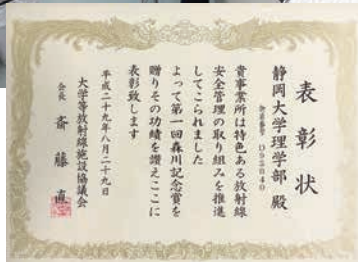 表彰状
静岡大学理学部 殿
貴事業所は特色ある放射線
安全管理の取り組みを推進
してこられました
よって第一回森川記念賞を
贈りその功績を讃えここに
表彰致します
平成二十九年八月二十九日
大学等放射線施設協議会
会長 斎藤 直